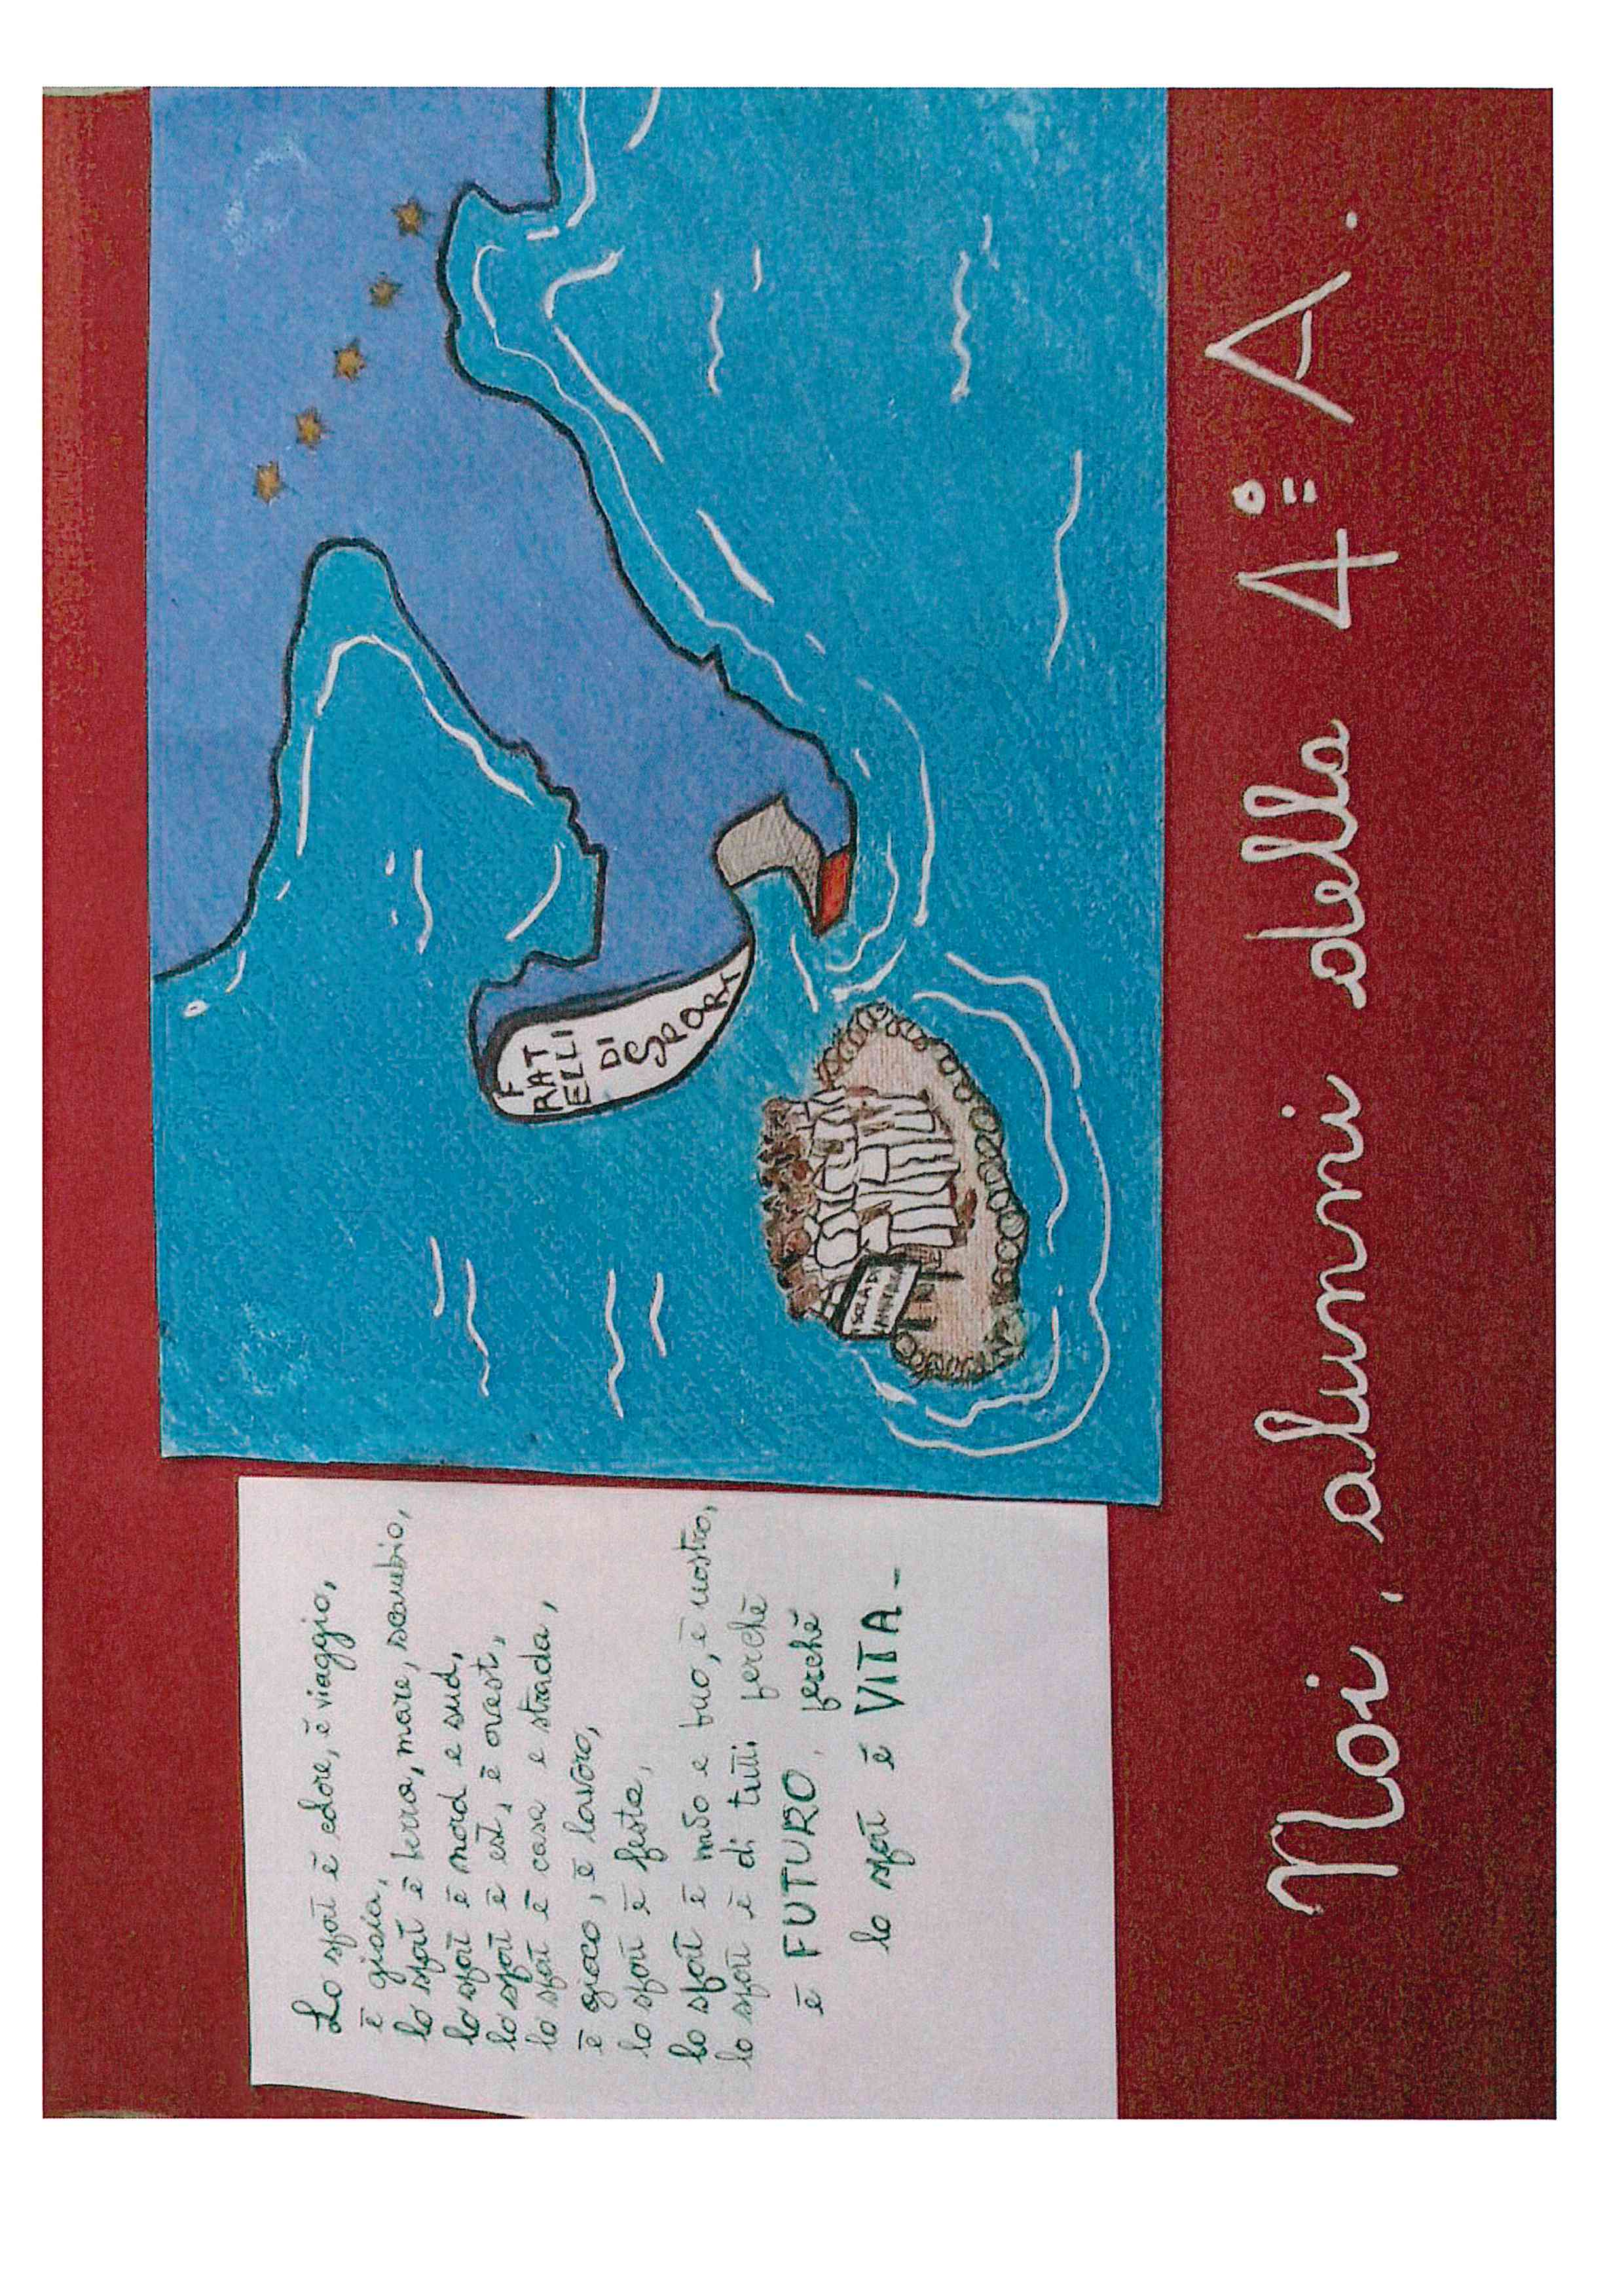 Lo sport è colore, è viaggio,
è gioia,
lo sport è terra, mare, scambio,
lo sport è nord e sud,
lo sport è est, è ovest,
lo sport è casa e strada,
è gioco, è lavoro,
lo sport è festa,
lo sport è mio e tuo, è nostro,
lo sport è di tutti perchè
è FUTURO, perchè
lo sport è VITA-
F
RAT
ELLI
DI
SPORT
ISOLA DI
Noi, alunni della 4ª A.